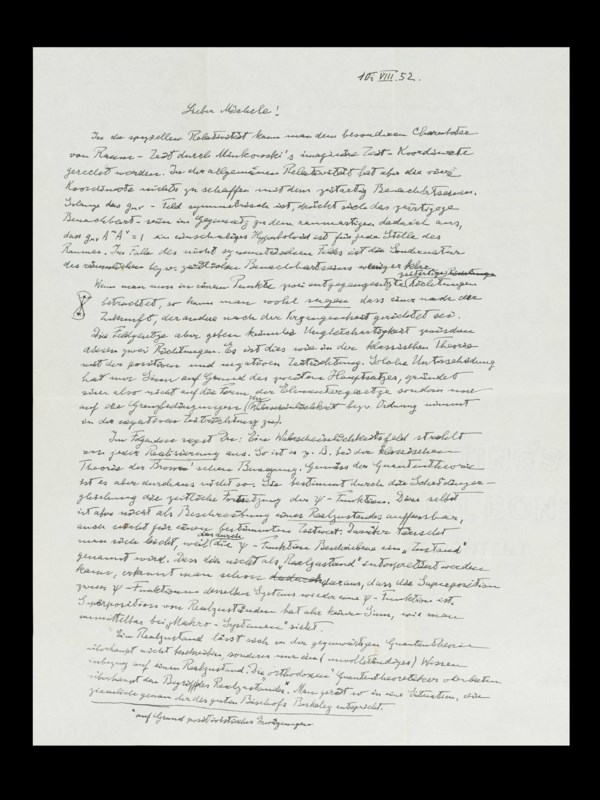 10. VIII. 52.
Lieber Michele!
In der speziellen Relativität kann man dem besonderen Charakter
von Raum-Zeit durch Minkowski's imaginäre Zeit-Koordinate
gerecht werden. In der allgemeinen Relativität hat aber die vierte
Koordinate nichts zu schaffen mit dem zeitartig Benachbartsein.
Solange das gμν-Feld symmetrisch ist, drückt sich das zeitartige
Benachbart-sein im Gegensatz zu dem raumartigen dadurch aus,
dass gμν AμAν = 1 ein einschaliges Hyperboloid ist für jede Stelle des
Raumes. Im Falle des nicht symmetrischen Feldes ist die Sondernatur
des räumlichen bezw. zeitlichen Benachbartseins weniger klar.
Wenn man nun in einem Punkte zwei entgegengesetzte zeitartige Richtungen
betrachtet, so kann man wohl sagen dass eine nach der
Zukunft, der andre nach der Vergangenheit gerichtet sei.
Die Feldgesetze aber geben keinerlei Ungleichartigkeit zwischen
diesen zwei Richtungen. Es ist dies wie in der klassischen Theorie
mit der positiven und negativen Zeitrichtung. Solche Unterscheidung
hat nur Sinn auf Grund des zweiten Hauptsatzes, gründet
sich also nicht auf die Form der Elementargesetze sondern nur
auf die Grenzbedingungen (Wahrscheinlichkeit bezw. Ordnung nimmt
in der negativen Zeitrichtung zu).
Im Folgenden sagst Du: Eine Wahrscheinlichkeitsfeld strahlt
von jeder Realisierung aus. So ist es z. B. bei der klassischen
Theorie der Brown'schen Bewegung. Gemäss der Quantentheorie
ist es aber durchaus nicht so. Sie bestimmt durch die Schrödinger-
gleichung die zeitliche Fortsetzung der ψ-Funktion. Diese selbst
ist aber nicht als Beschreibung eines Realzustandes auffassbar,
auch nicht für einen bestimmten Zeitwert. Darüber täuscht
man sich leicht, weil das durch die ψ-Funktion Beschriebene ein „Zustand"
genannt wird. Dass dies nicht als „Realzustand" interpretiert werden
kann, erkennt man schon daraus, dass die Superposition
zweier ψ-Funktionen desselben Systems wieder eine ψ-Funktion ist.
Superposition von Realzuständen hat aber keinen Sinn, wie man
unmittelbar bei „Makro-Systemen" sieht.
Ein Realzustand lässt sich in der gegenwärtigen Quantentheorie
überhaupt nicht beschreiben, sondern nur ein (unvollständiges) Wissen
inbezug auf einen Realzustand. Die „orthodoxen" Quantentheoretiker verbieten
überhaupt den Begriff des Realzustandes*. Man gerät so in eine Situation, die
ziemlich genau der des guten Bischofs Berkeley entspricht.
* auf Grund positivistischer Erwägungen